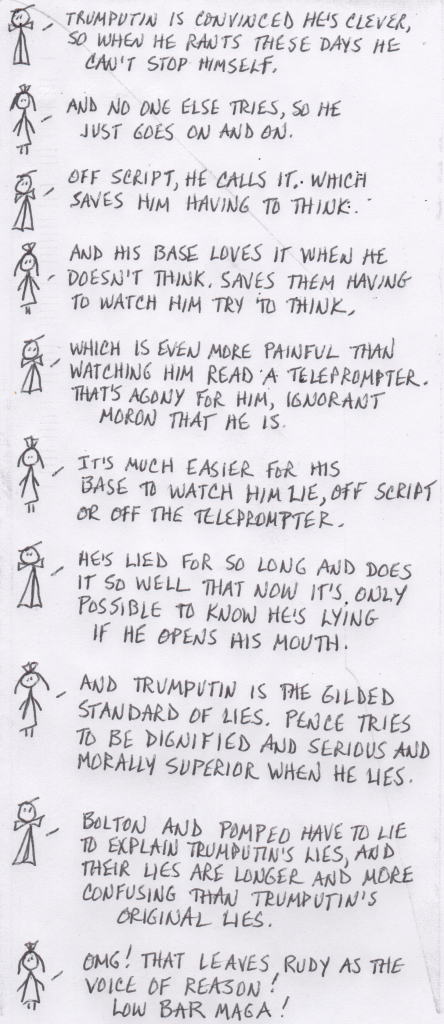 TRUMPUTIN IS CONVINCED HE'S CLEVER,
SO WHEN HE RANTS THESE DAYS HE
CAN'T STOP HIMSELF.
AND NO ONE ELSE TRIES, SO HE
JUST GOES ON AND ON.
OFF SCRIPT, HE CALLS IT. WHICH
SAVES HIM HAVING TO THINK.
AND HIS BASE LOVES IT WHEN HE
DOESN'T THINK. SAVES THEM HAVING
TO WATCH HIM TRY TO THINK.
WHICH IS EVEN MORE PAINFUL THAN
WATCHING HIM READ A TELEPROMPTER.
THAT'S AGONY FOR HIM, IGNORANT
MORON THAT HE IS.
IT'S MUCH EASIER FOR HIS
BASE TO WATCH HIM LIE, OFF SCRIPT
OR OFF THE TELEPROMPTER.
HE'S LIED FOR SO LONG AND DOES
IT SO WELL THAT NOW IT'S ONLY
POSSIBLE TO KNOW HE'S LYING
IF HE OPENS HIS MOUTH.
AND TRUMPUTIN IS THE GILDED
STANDARD OF LIES. PENCE TRIES
TO BE DIGNIFIED AND SERIOUS AND
MORALLY SUPERIOR WHEN HE LIES.
BOLTON AND POMPEO HAVE TO LIE
TO EXPLAIN TRUMPUTIN'S LIES, AND
THEIR LIES ARE LONGER AND MORE
CONFUSING THAN TRUMPUTIN'S
ORIGINAL LIES.
OMG! THAT LEAVES RUDY AS THE
VOICE OF REASON!
LOW BAR MAGA!